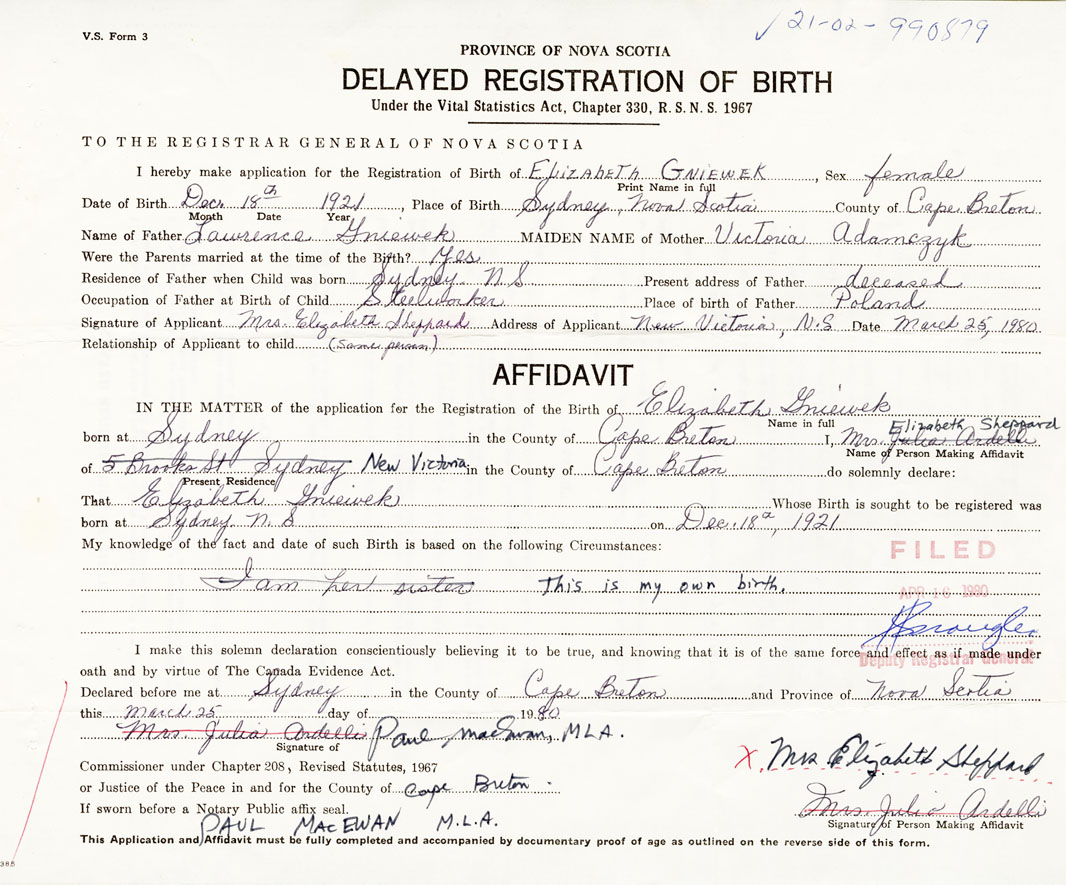 V.S. Form 3
21-02-990879
PROVINCE OF NOVA SCOTIA
DELAYED REGISTRATION OF BIRTH
Under the Vital Statistics Act, Chapter 330, R.S.N.S. 1967
TO THE REGISTRAR GENERAL OF NOVA SCOTIA
I hereby make application for the Registration of Birth of Elizabeth Gniewek, Sex female
Print Name in full
Date of Birth Dec. 18th 1921, Place of Birth Sydney, Nova Scotia County of Cape Breton
Month Date Year
Name of Father Lawrence Gniewek MAIDEN NAME of Mother Victoria Adamczyk
Were the Parents married at the time of the Birth? Yes
Residence of Father when Child was born Sydney N S Present address of Father deceased
Occupation of Father at Birth of Child Steelworker Place of birth of Father Poland
Signature of Applicant Mrs. Elizabeth Sheppard Address of Applicant New Victoria, N.S. Date March 25, 1980
Relationship of Applicant to child (same person)
AFFIDAVIT
IN THE MATTER of the application for the Registration of the Birth of Elizabeth Gniewek
Name in full Elizabeth Sheppard
born at Sydney in the County of Cape Breton I, Mrs. Julia Ardelli
Name of Person Making Affidavit
of 5 Brooks St. Sydney New Victoria in the County of Cape Breton do solemnly declare:
Present Residence
That Elizabeth Gniewek Whose Birth is sought to be registered was
born at Sydney N. S on Dec. 18th, 1921
My knowledge of the fact and date of such Birth is based on the following Circumstances:
FILED
I am her sister This is my own birth.
APR 16 1980
I make this solemn declaration conscientiously believing it to be true, and knowing that it is of the same force and effect as if made under
Deputy Registrar General
oath and by virtue of The Canada Evidence Act.
Declared before me at Sydney in the County of Cape Breton and Province of Nova Scotia
this March 25 day of 1980
Mrs. Julia Ardelli Paul MacEwan, MLA.
Signature of
Commissioner under Chapter 208, Revised Statutes, 1967
X. Mrs Elizabeth Sheppard
or Justice of the Peace in and for the County of Cape Breton.
Mrs Julia Ardelli
If sworn before a Notary Public affix seal.
Signature of Person Making Affidavit
PAUL MACEWAN M.L.A.
This Application and Affidavit must be fully completed and accompanied by documentary proof of age as outlined on the reverse side of this form.